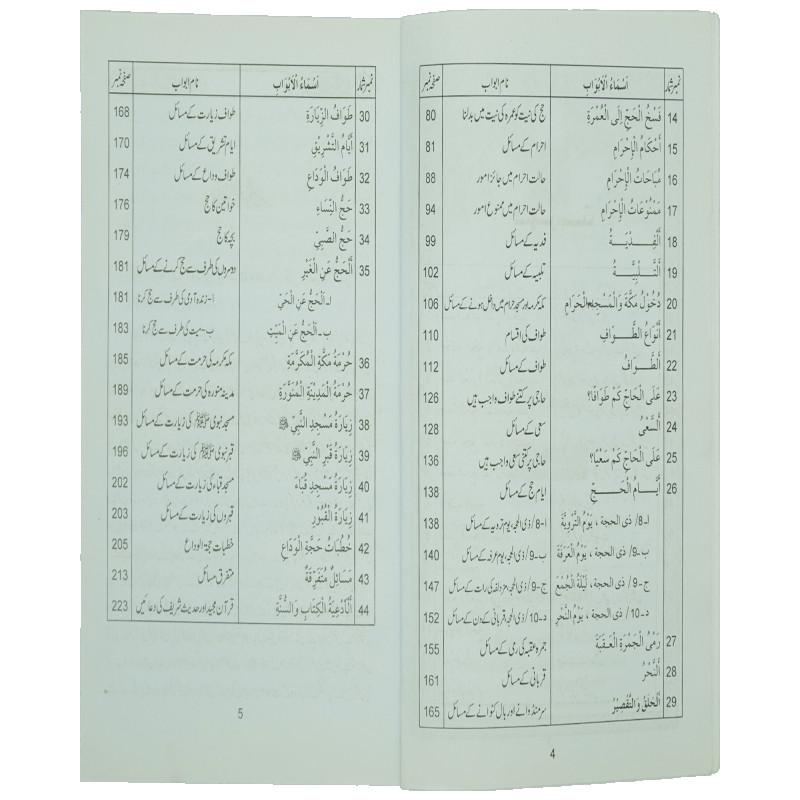 نمبر شمار اَسْمَاءُ الْاَبْوَابِ نام ابواب صفحہ نمبر
14 فَسْخُ الْحَجِّ اِلَى الْعُمْرَةِ حج کی نیت کو عمرہ کی نیت میں بدلنا 80
15 اَحْكَامُ الْاِحْرَامِ احرام کے مسائل 81
16 مُبَاحَاتُ الْاِحْرَامِ حالت احرام میں جائز امور 88
17 مَمْنُوْعَاتُ الْاِحْرَامِ حالت احرام میں ممنوع امور 94
18 اَلْفِدْيَـــةُ فدیہ کے مسائل 99
19 اَلتَّلْبِيَـــةُ تلبیہ کے مسائل 102
20 دُخُوْلُ مَكَّةَ وَالْمَسْجِدِ الْحَرَامِ مکہ مکرمہ اور مسجد حرام میں داخل ہونے کے مسائل 106
21 اَنْوَاعُ الطَّـــوَافِ طواف کی اقسام 110
22 اَلطَّـــوَافُ طواف کے مسائل 112
23 عَلَى الْحَاجِّ كَمْ طَوَافًا؟ حاجی پر کتنے طواف واجب ہیں 126
24 اَلسَّعْىُ سعی کے مسائل 128
25 عَلَى الْحَاجِّ كَمْ سَعْيًا؟ حاجی پر کتنی سعی واجب ہیں 136
26 اَيَّـــامُ الْحَـــجِّ ایام حج کے مسائل 138
ا-8/ ذی الحجة ، يَوْمُ التَّرْوِيَةِ ا-8/ ذی الحجہ یوم ترویہ کے مسائل 138
ب-9/ ذی الحجة ، يَوْمُ الْعَرَفَةِ ب-9/ ذی الحجہ، یوم عرفہ کے مسائل 140
ج-9/ ذی الحجة ، لَيْلَةُ الْجُمَعِ ج-9/ ذی الحجہ، مزدلفہ کی رات کے مسائل 147
د-10/ ذی الحجة ، يَوْمُ النَّحْرِ د-10/ ذی الحجہ، قربانی کے دن کے مسائل 152
27 رَمْىُ الْجَمْرَةِ الْعَقَبَةَ جمرہ عقبہ کی رمی کے مسائل 155
28 اَلنَّحْرُ قربانی کے مسائل 161
29 اَلْحَلَقُ وَالتَّقْصِيْرُ سر منڈوانے اور بال کٹوانے کے مسائل 165
4
نمبر شمار اَسْمَاءُ الْاَبْوَابِ نام ابواب صفحہ نمبر
30 طَوَافُ الزِّيَارَةِ طواف زیارت کے مسائل 168
31 اَيَّامُ التَّشْرِيْقِ ایام تشریق کے مسائل 170
32 طَوَافُ الْوَدَاعِ طواف وداع کے مسائل 174
33 حَجُّ النِّسَاءِ خواتین کا حج 176
34 حَجُّ الصَّبِيِّ بچہ کا حج 179
35 اَلْحَجُّ عَنِ الْغَيْرِ دوسروں کی طرف سے حج کرنے کے مسائل 181
ا-اَلْحَجُّ عَنِ الْحَيِّ ا-زندہ آدمی کی طرف سے حج کرنا 181
ب-اَلْحَجُّ عَنِ الْمَيِّتِ ب-میت کی طرف سے حج کرنا 183
36 حُرْمَةُ مَكَّةِ الْمُكَرَّمَةِ مکہ مکرمہ کی حرمت کے مسائل 185
37 حُرْمَةُ الْمَدِيْنَةِ الْمُنَوَّرَةِ مدینہ منورہ کی حرمت کے مسائل 189
38 زِيَارَةُ مَسْجِدِ النَّبِيِّ ﷺ مسجد نبوی ﷺ کی زیارت کے مسائل 193
39 زِيَارَةُ قَبْرِ النَّبِيِّ ﷺ قبر نبوی ﷺ کی زیارت کے مسائل 196
40 زِيَارَةُ مَسْجِدِ قُبَاءَ مسجد قباء کی زیارت کے مسائل 202
41 زِيَارَةُ الْقُبُوْرِ قبروں کی زیارت کے مسائل 203
42 خُطْبَاتُ حَجَّةِ الْوَدَاعِ خطبات حجۃ الوداع 205
43 مَسَائِلُ مُتَفَرِّقَةٌ متفرق مسائل 213
44 اَلْاَدْعِيَةُ الْكِتَابِ وَالسُّنَّةِ قرآن مجید اور حدیث شریف کی دعائیں 223
5